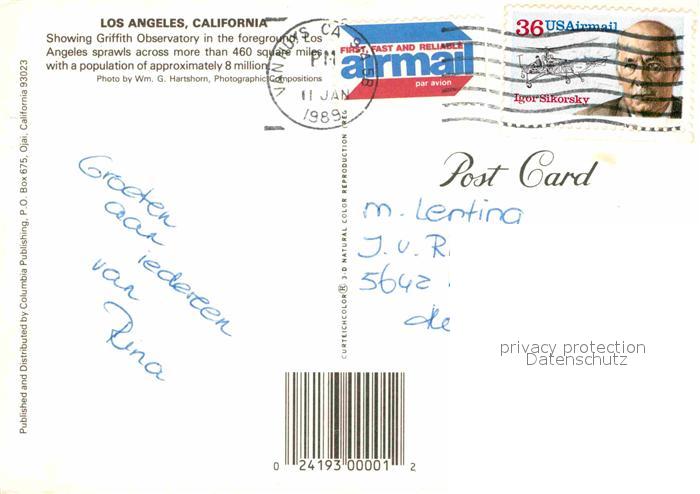 LOS ANGELES, CALIFORNIA
Showing Griffith Observatory in the foreground, Los
Angeles sprawls across more than 460 square miles
with a population of approximately 8 million.
Photo by Wm. G. Hartshorn, Photographic Compositions
Published and Distributed by Columbia Publishing, P.O. Box 675, Ojai, California 93023
VAN NUYS CA
PM
11 JAN
1989
FIRST, FAST AND RELIABLE
airmail
par avion
36 USAirmail
Igor Sikorsky
Post Card
CURTEICHCOLOR® 3-D NATURAL COLOR REPRODUCTION (REG
Groeten
aan
iedereen
van
Rina
m. Lentina
J. v. R
5642
de
privacy protection
Datenschutz
0 24193 00001 2